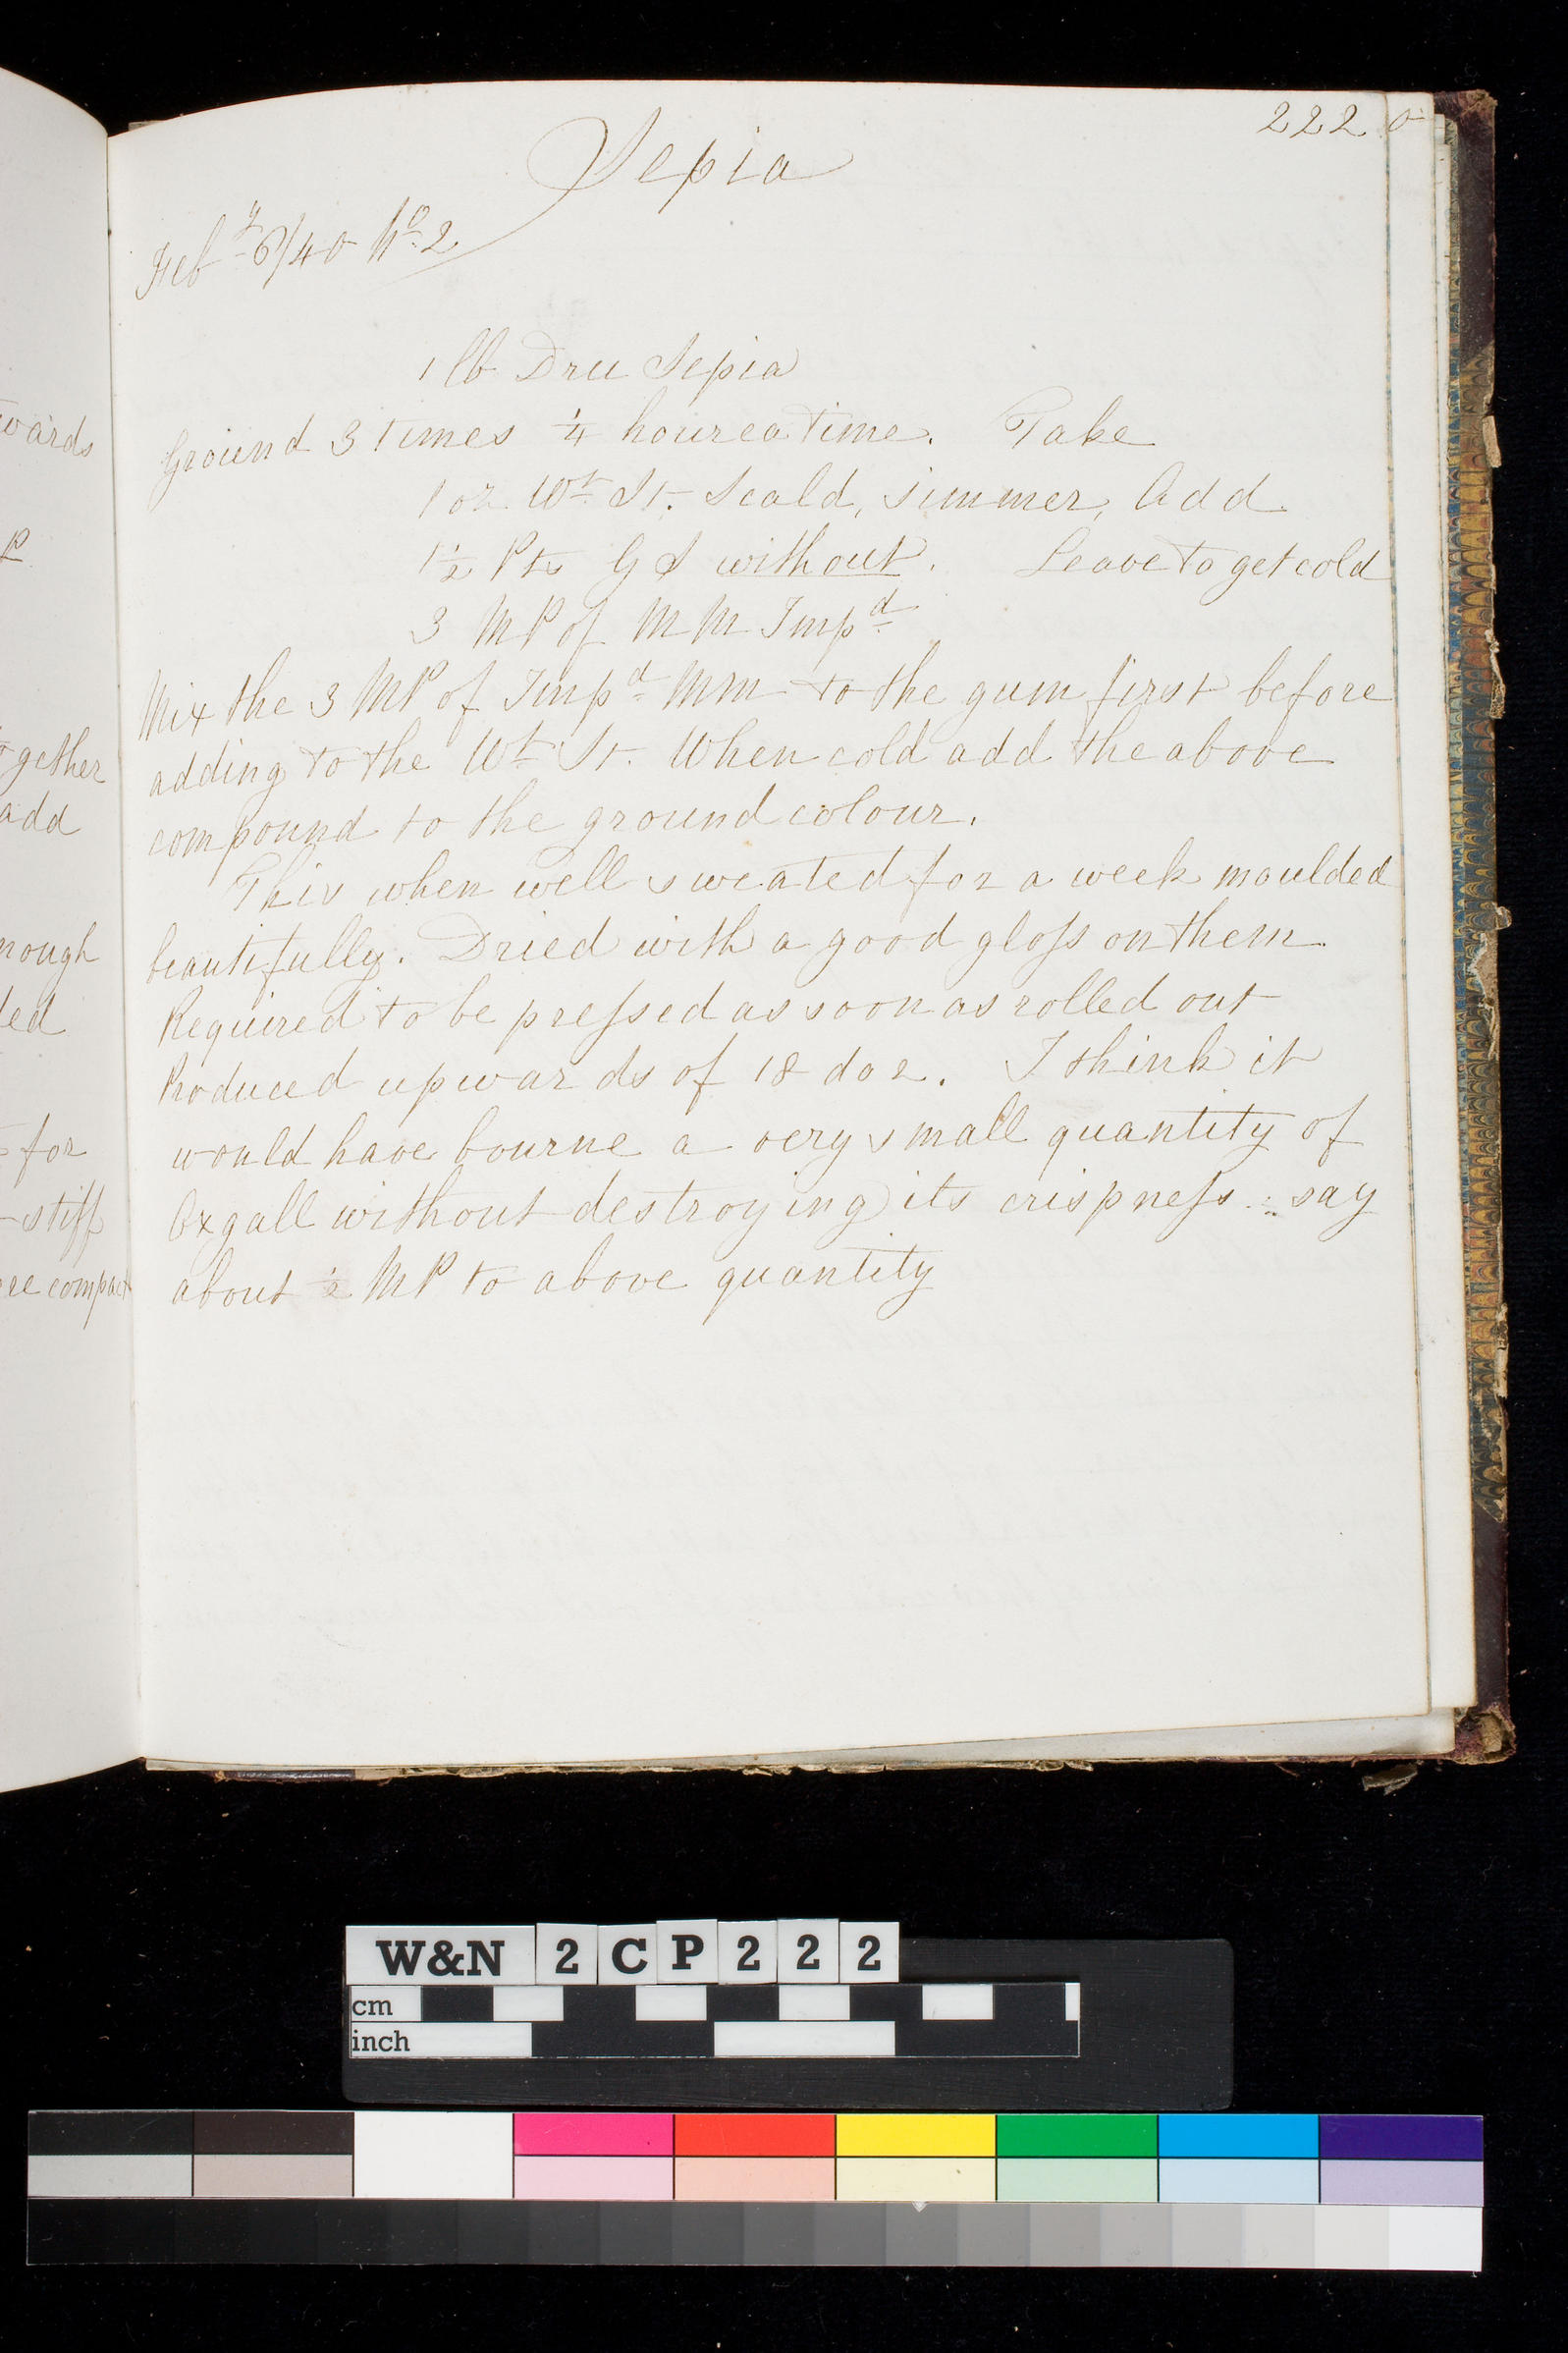 222
Sepia
Feby 6/40 No 2
1 lb Dru Sepia
Ground 3 times ¼ hour ea time. Take
1 oz Wt St. Scald, simmer, Add
1½ Pts G S without. Leave to get cold
3 MP of MM Impd
Mix the 3 MP of Impd MM to the gum first before
adding to the Wt St. When cold add the above
compound to the ground colour.
This when well sweated for a week moulded
beautifully. Dried with a good gloſs on them
Required to be preſsed as soon as rolled out
Produced upwards of 18 doz. I think it
would have bourne a very small quantity of
Oxgall without destroying its crispneſs :- say
about ½ MP to above quantity
wards
P
gether
add
nough
ded
for
stiff
re compact
W&N 2CP222
cm
inch